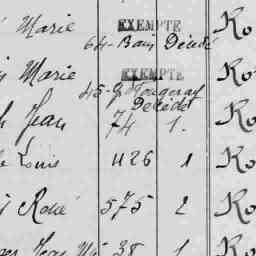 Marie EXEMPTE Ro
64 - Bain Décédé
Marie EXEMPTE Ro
45 - 
Décédé
Jean 74 1. Ro
Louis 1126 1 Ro
René 575 2 Ro
Jean 38 1 Ro